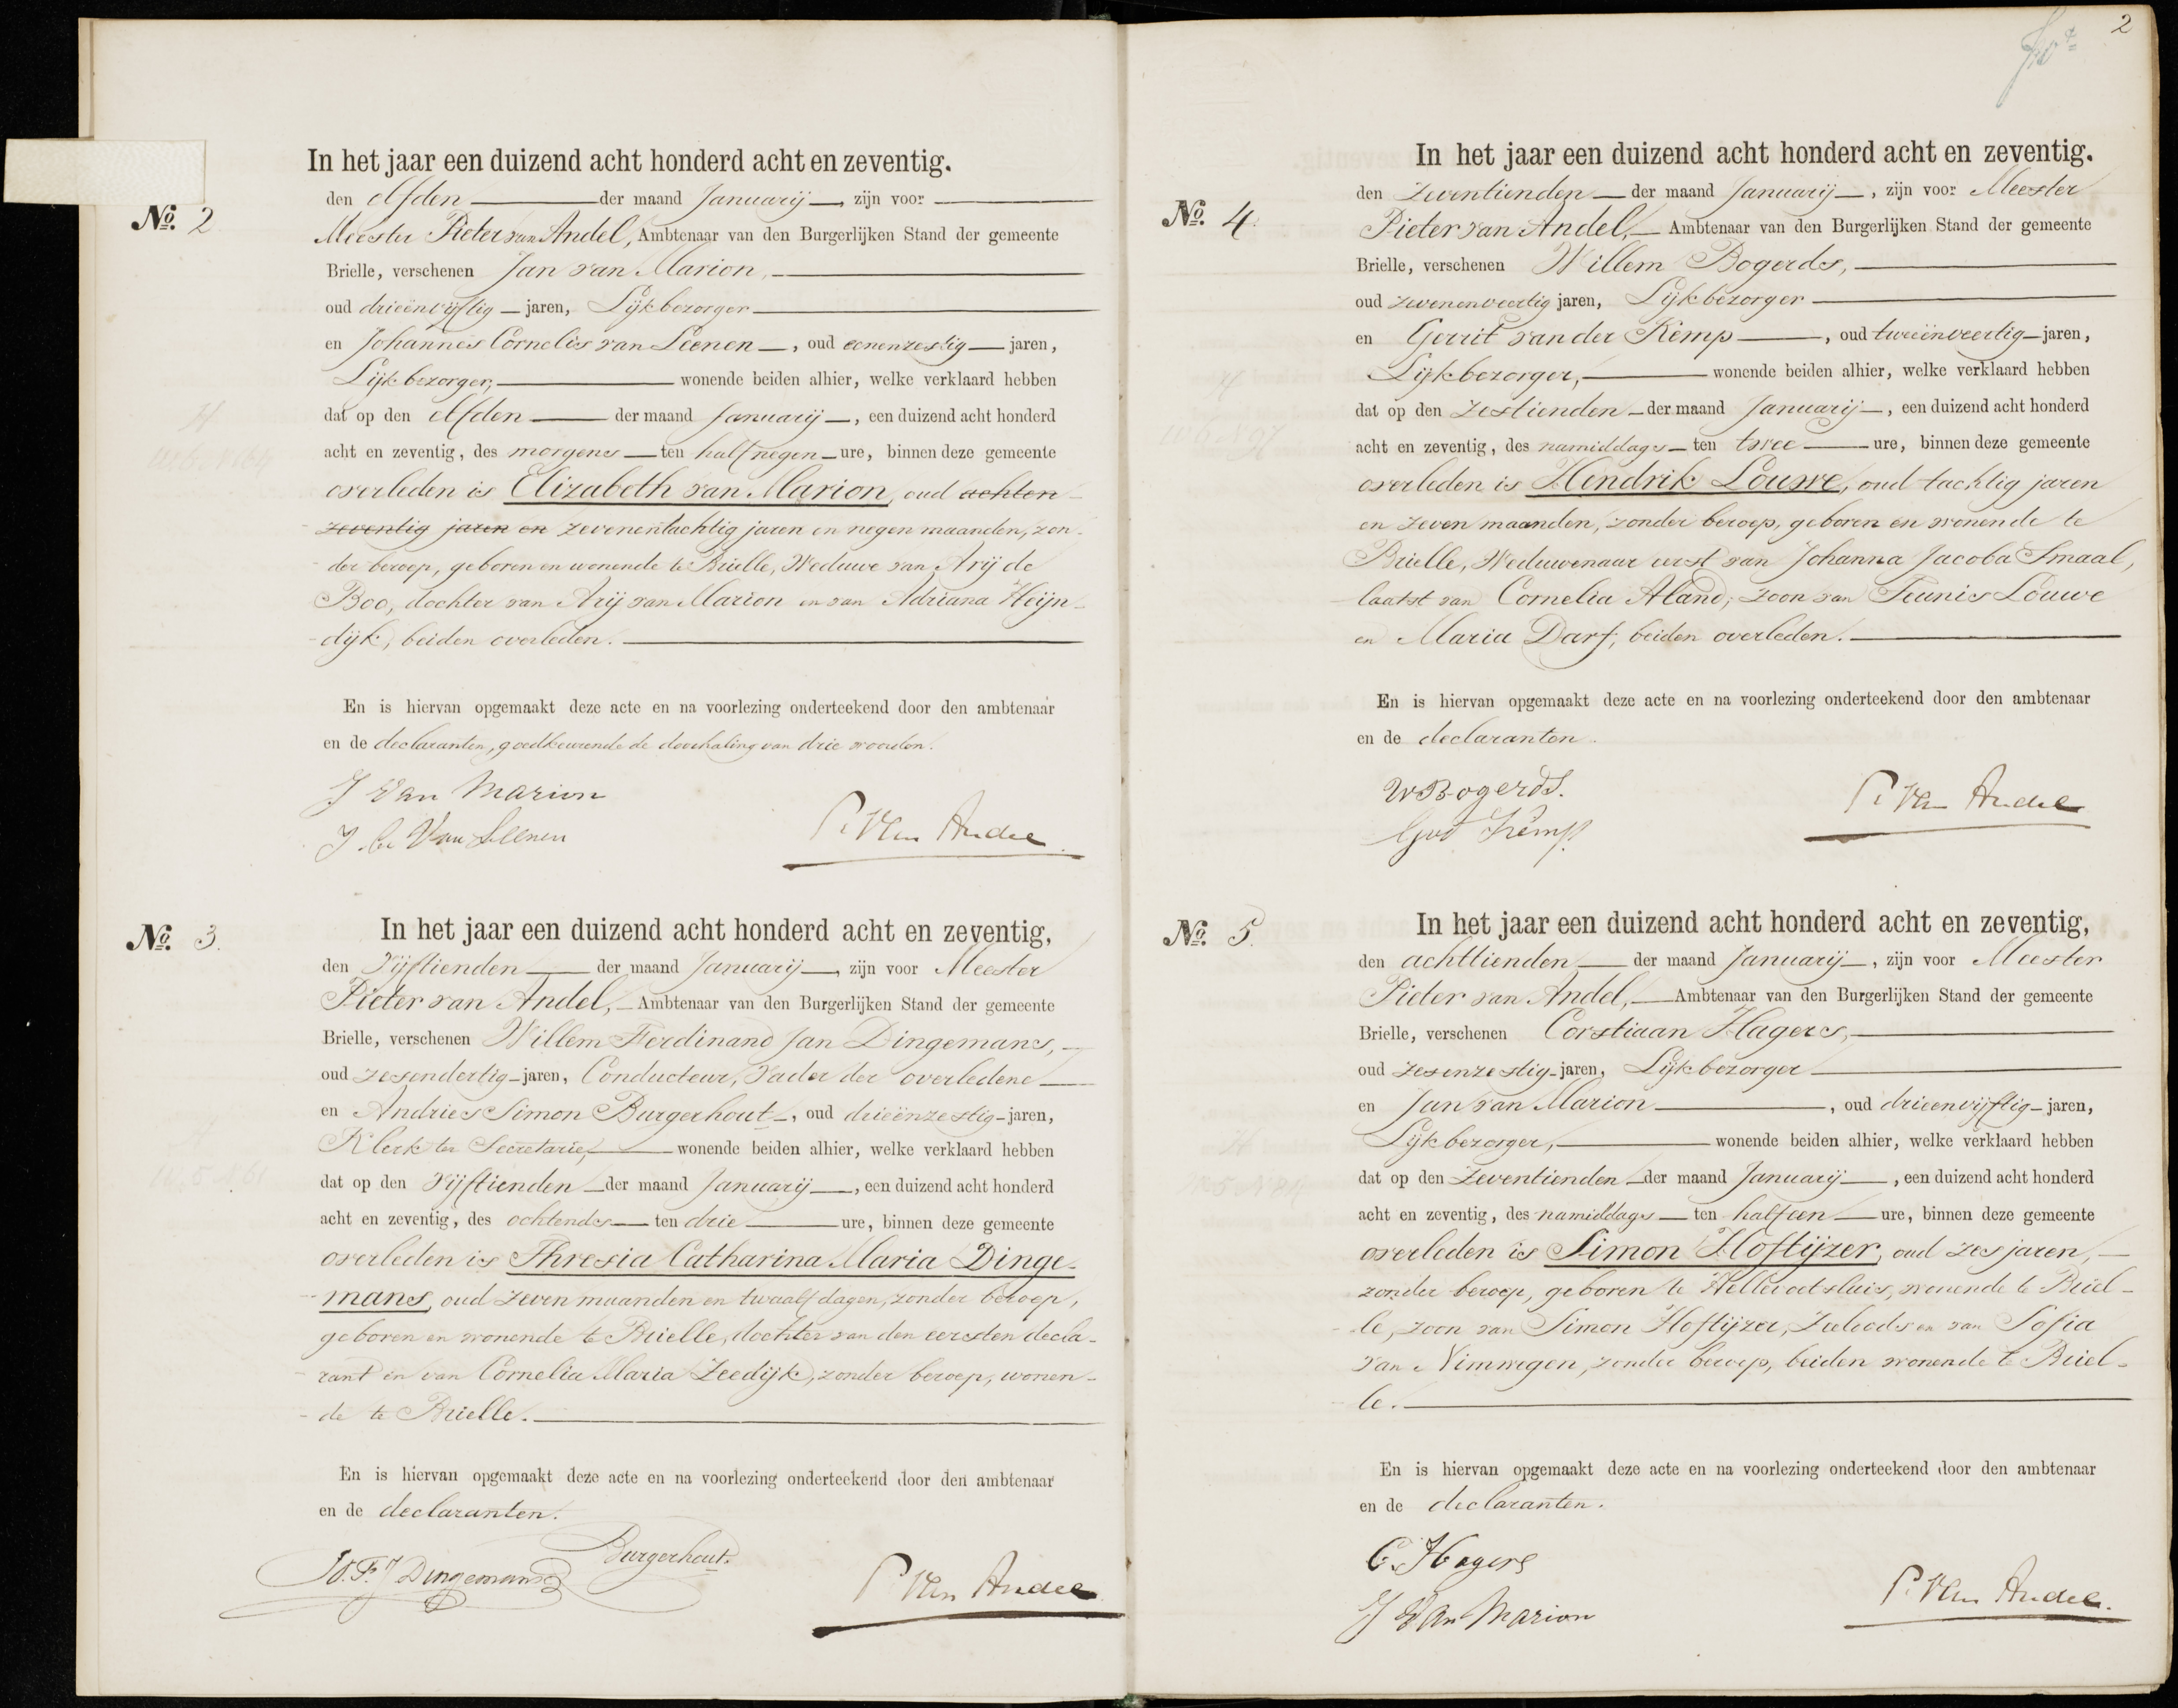 2
In het jaar een duizend acht honderd acht en zeventig.
No. 2
den elfden der maand Januarij, zijn voor
Meester Pieter van Andel, Ambtenaar van den Burgerlijken Stand der gemeente
Brielle, verschenen Jan van Marion,
oud drieënvijftig jaren, Lijkbezorger
en Johannes Cornelis van Leenen, oud eenenzestig jaren,
Lijkbezorger, wonende beiden alhier, welke verklaard hebben
dat op den elfden der maand Januarij, een duizend acht honderd
acht en zeventig, des morgens ten half negen ure, binnen deze gemeente
overleden is Elizabeth van Marion, oud achten-
zeventig jaren en zevenentachtig jaren en negen maanden, zon-
der beroep, geboren en wonende te Brielle, Weduwe van Arij de
Boo, dochter van Arij van Marion en van Adriana Heijn-
dijk, beiden overleden.
En is hiervan opgemaakt deze acte en na voorlezing onderteekend door den ambtenaar
en de declaranten, goedkeurende de doorhaling van drie woorden.
J Van Marion
J. C. Van Leenen
P. van Andel
In het jaar een duizend acht honderd acht en zeventig,
No. 3.
den vijftienden der maand Januarij, zijn voor Meester
Pieter van Andel, Ambtenaar van den Burgerlijken Stand der gemeente
Brielle, verschenen Willem Ferdinand Jan Dingemans,
oud zesendertig jaren, Conducteur, Vader der overledene
en Andries Simon Burgerhout, oud drieënzestig jaren,
Klerk ter Secretarie, wonende beiden alhier, welke verklaard hebben
dat op den vijftienden der maand Januarij, een duizend acht honderd
acht en zeventig, des ochtends ten drie ure, binnen deze gemeente
overleden is Thresia Catharina Maria Dinge-
mans, oud zeven maanden en twaalf dagen, zonder beroep,
geboren en wonende te Brielle, dochter van den eersten decla-
rant en van Cornelia Maria Zeedijk, zonder beroep, wonen-
de te Brielle.
En is hiervan opgemaakt deze acte en na voorlezing onderteekend door den ambtenaar
en de declaranten.
W. F. J Dingemans
Burgerhout
P. van Andel
In het jaar een duizend acht honderd acht en zeventig.
No. 4.
den zeventienden der maand Januarij, zijn voor Meester
Pieter van Andel, Ambtenaar van den Burgerlijken Stand der gemeente
Brielle, verschenen Willem Bogerds,
oud zevenenveertig jaren, Lijkbezorger
en Gerrit van der Kemp, oud tweeënveertig jaren,
Lijkbezorger, wonende beiden alhier, welke verklaard hebben
dat op den zestienden der maand Januarij, een duizend acht honderd
acht en zeventig, des namiddags ten twee ure, binnen deze gemeente
overleden is Hendrik Louwe, oud tachtig jaren
en zeven maanden, zonder beroep, geboren en wonende te
Brielle, Weduwenaar eerst van Johanna Jacoba Smaal,
laatst van Cornelia Aland, zoon van Teunis Louwe
en Maria Darf, beiden overleden.
En is hiervan opgemaakt deze acte en na voorlezing onderteekend door den ambtenaar
en de declaranten.
W Bogerds.
Gvd Kemp
P. van Andel
In het jaar een duizend acht honderd acht en zeventig,
No. 5.
den achttienden der maand Januarij, zijn voor Meester
Pieter van Andel, Ambtenaar van den Burgerlijken Stand der gemeente
Brielle, verschenen Corstiaan Hagers,
oud zesenzestig jaren, Lijkbezorger
en Jan van Marion, oud drieenvijftig jaren,
Lijkbezorger, wonende beiden alhier, welke verklaard hebben
dat op den zeventienden der maand Januarij, een duizend acht honderd
acht en zeventig, des namiddags ten half een ure, binnen deze gemeente
overleden is Simon Hoftijzer, oud zes jaren,
zonder beroep, geboren te Hellevoetsluis, wonende te Briel-
le, zoon van Simon Hoftijzer, Zeeloods en van Sofia
van Nimwegen, zonder beroep, beiden wonende te Briel-
le.
En is hiervan opgemaakt deze acte en na voorlezing onderteekend door den ambtenaar
en de declaranten.
C. Hagers
J Van Marion
P. van Andel.